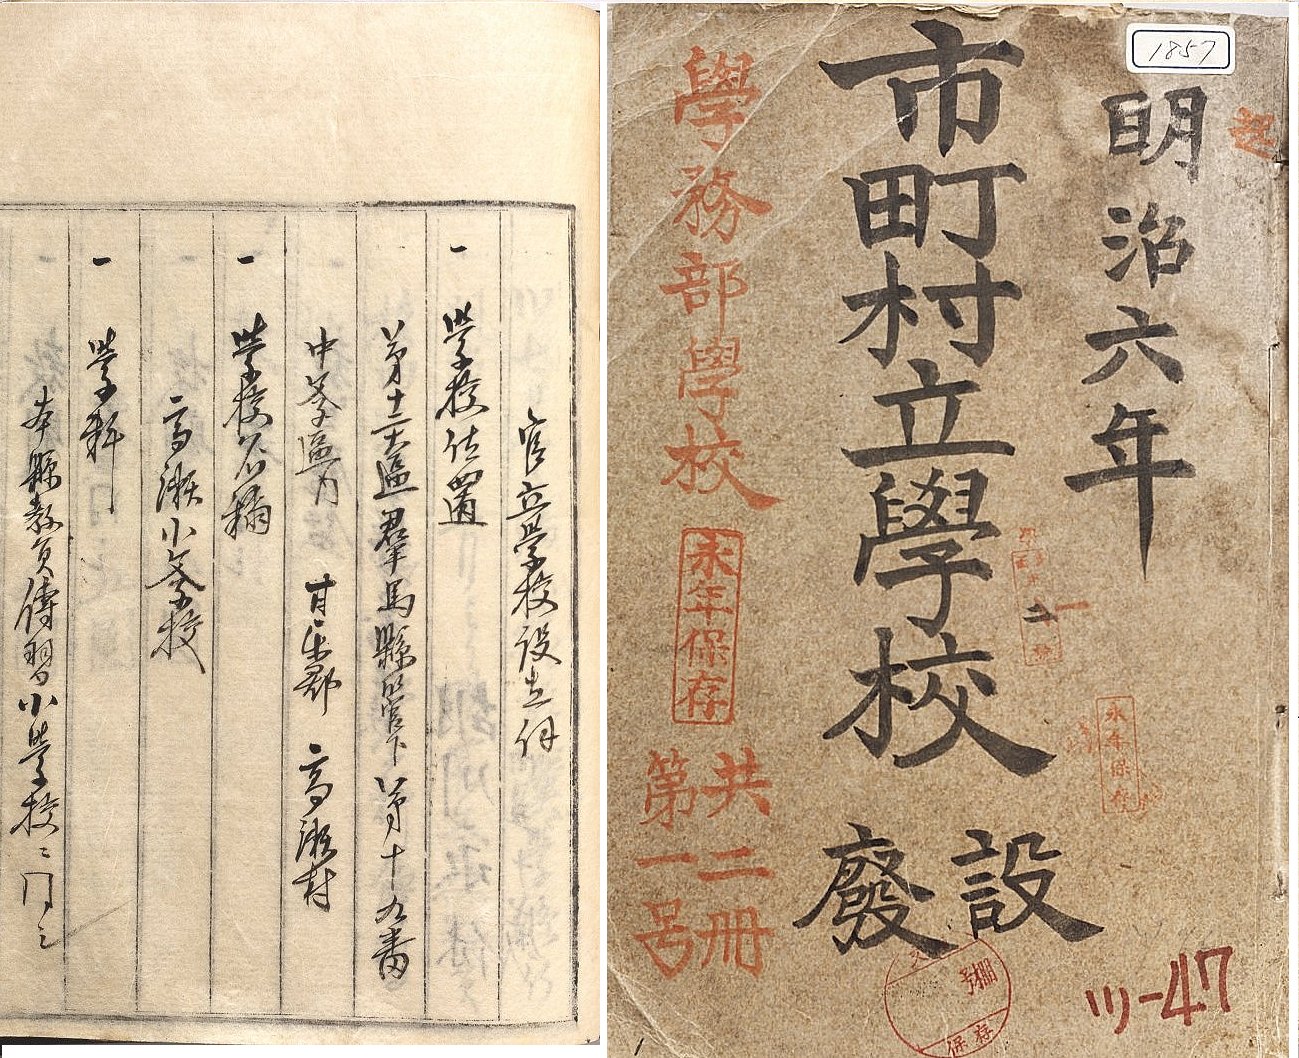 1857
明治六年
市町村立學校
設
廢
學務部學校
永年保存
共二冊
第一号
永年保存
保存
47
官立学校設立伺
一 学校位置
第十二大區群馬縣管下第十九番
中学區内 甘楽郡 高瀬村
一 学校名稱
高瀬小学校
一 学科
本縣教員傳習小学校ニ同シ